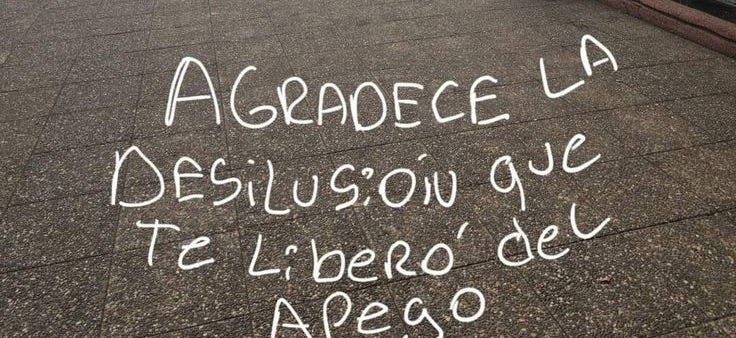 AGRADECE LA
DESiLUSiÓN que
Te Liberó del
APego